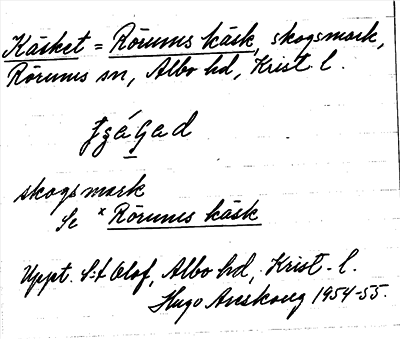 Käsket = Rörums käsk, skogsmark,
Rörums sn, Albo hd, Krist l.
skogsmark
Se × Rörums käsk
Uppt. S:t Olof, Albo hd, Krist. l.
Hugo Areskoug 1954-55.